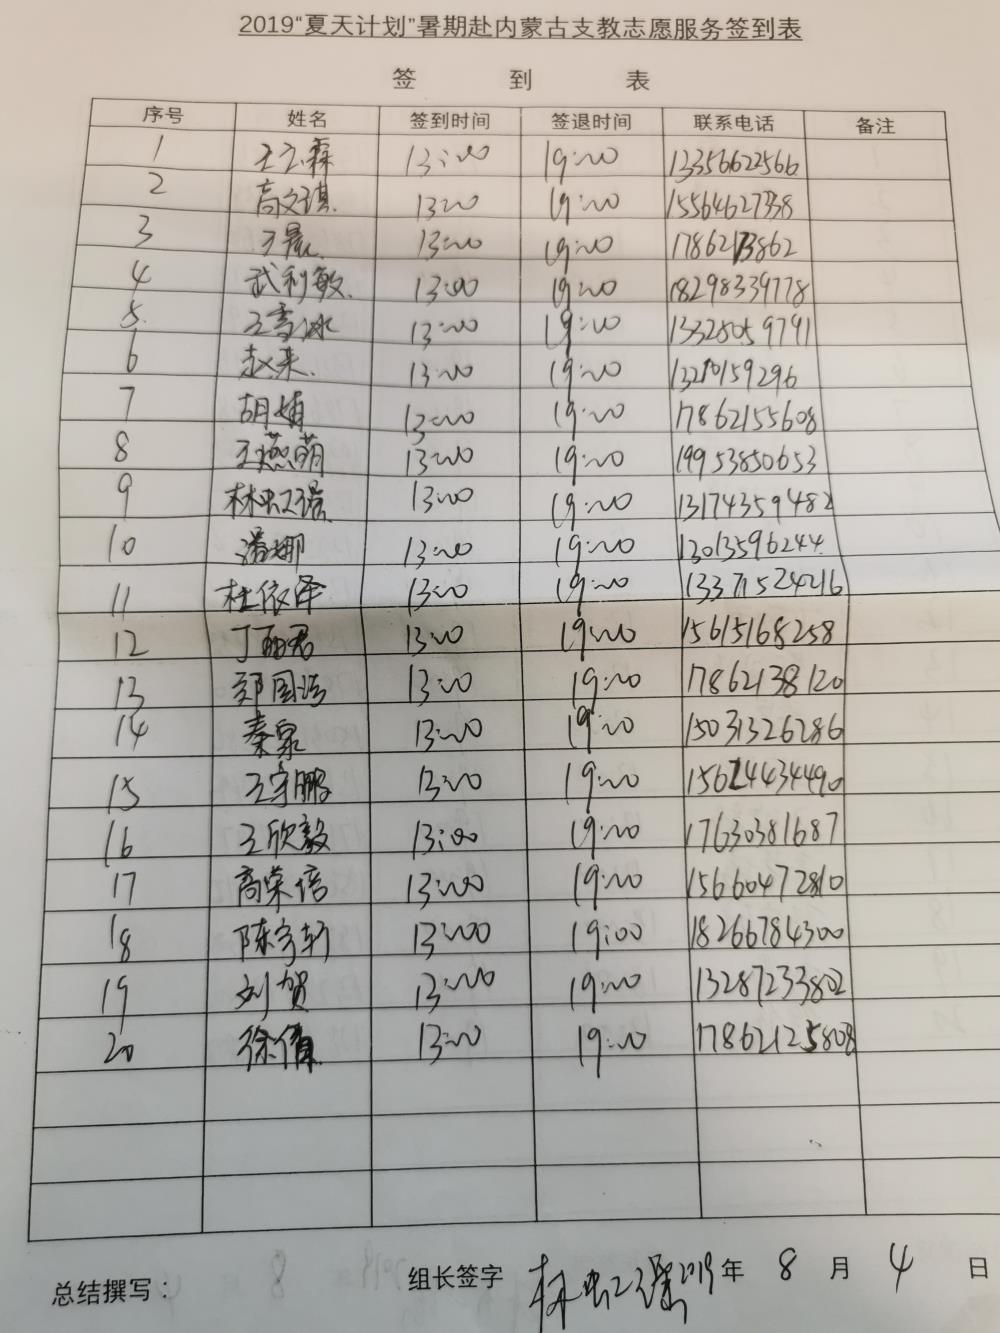 2019“夏天计划”暑期赴内蒙古支教志愿服务签到表
签 到 表
序号 姓名 签到时间 签退时间 联系电话 备注
1 王立森 13:00 19:00 13356622566
2 高文琪 13:00 19:00 15564627338
3 王晨 13:00 19:00 1786213862
4 武利敏 13:00 19:00 18298339778
5 王雪冰 13:00 19:00 13328059791
6 赵来 13:00 19:00 13210159296
7 胡婧 13:00 19:00 17862155608
8 王燕萌 13:00 19:00 19953850653
9 林虹瑶 13:00 19:00 13174359482
10 潘娜 13:00 19:00 13013596244
11 杜依泽 13:00 19:00 13371524216
12 丁丽君 13:00 19:00 15615168258
13 郑国洁 13:00 19:00 17862138120
14 秦泉 13:00 19:00 15031326286
15 王宇鹏 13:00 19:00 15624434490
16 王欣毅 13:00 19:00 17630381687
17 高荣培 13:00 19:00 15660472810
18 陈宇轩 13:00 19:00 18266784300
19 刘贺 13:00 19:00 13287233802
20 徐倩 13:00 19:00 17862125808
总结撰写： 组长签字 林虹瑶 2019年 8 月 4 日